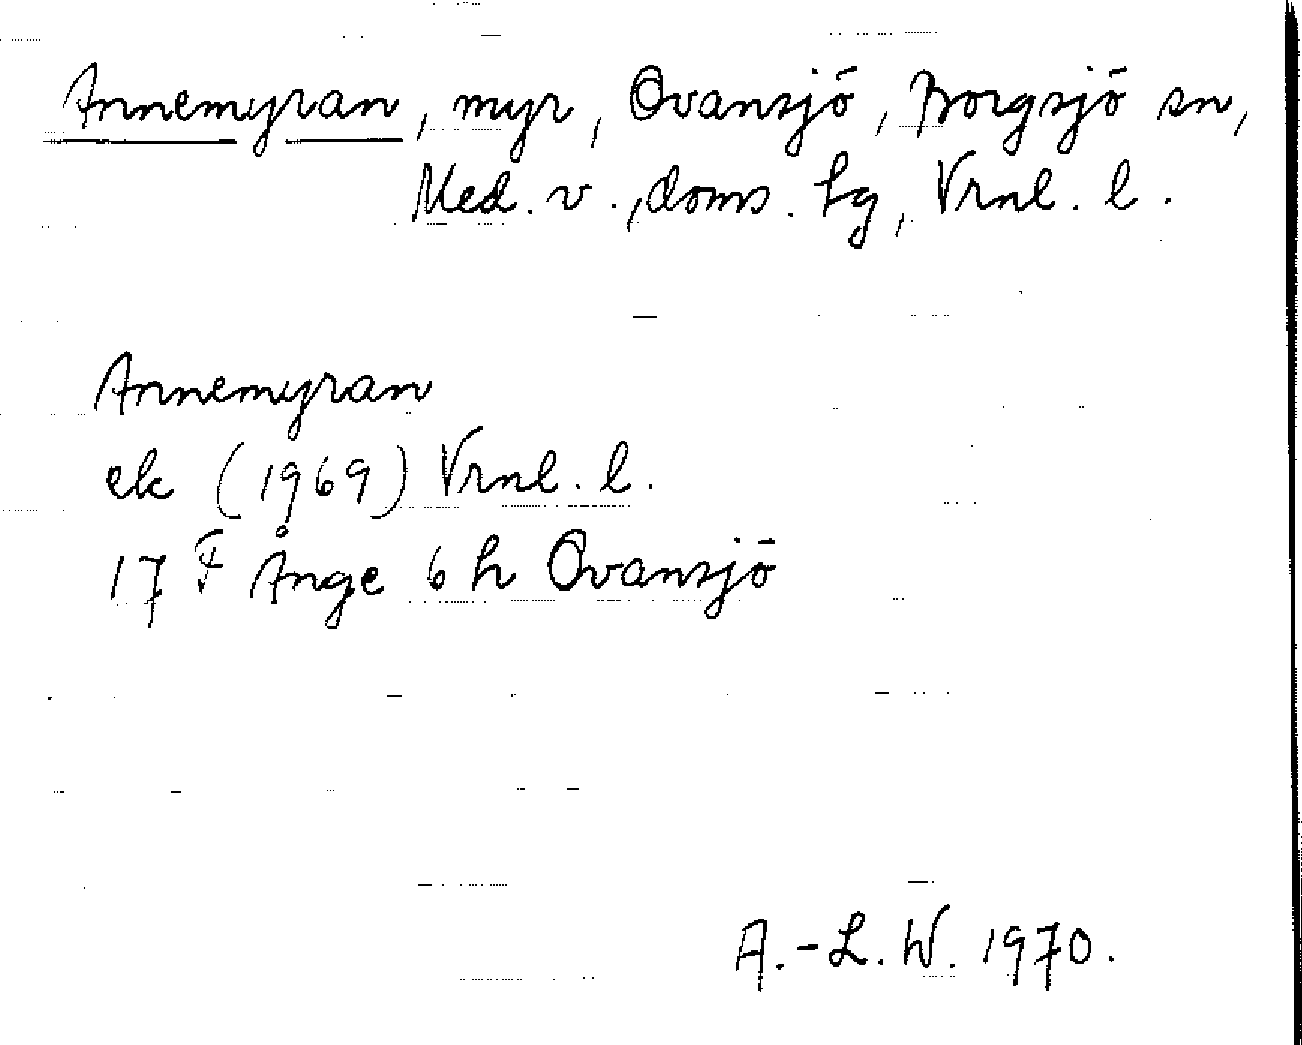 Annemyran, myr, Ovansjö, Borgsjö sn,
Med. v., doms. hg, Vrnl. l.
Annemyran
ek (1969) Vrnl. l.
17 F Ånge 6 h Ovansjö
A.-L. W. 1970.